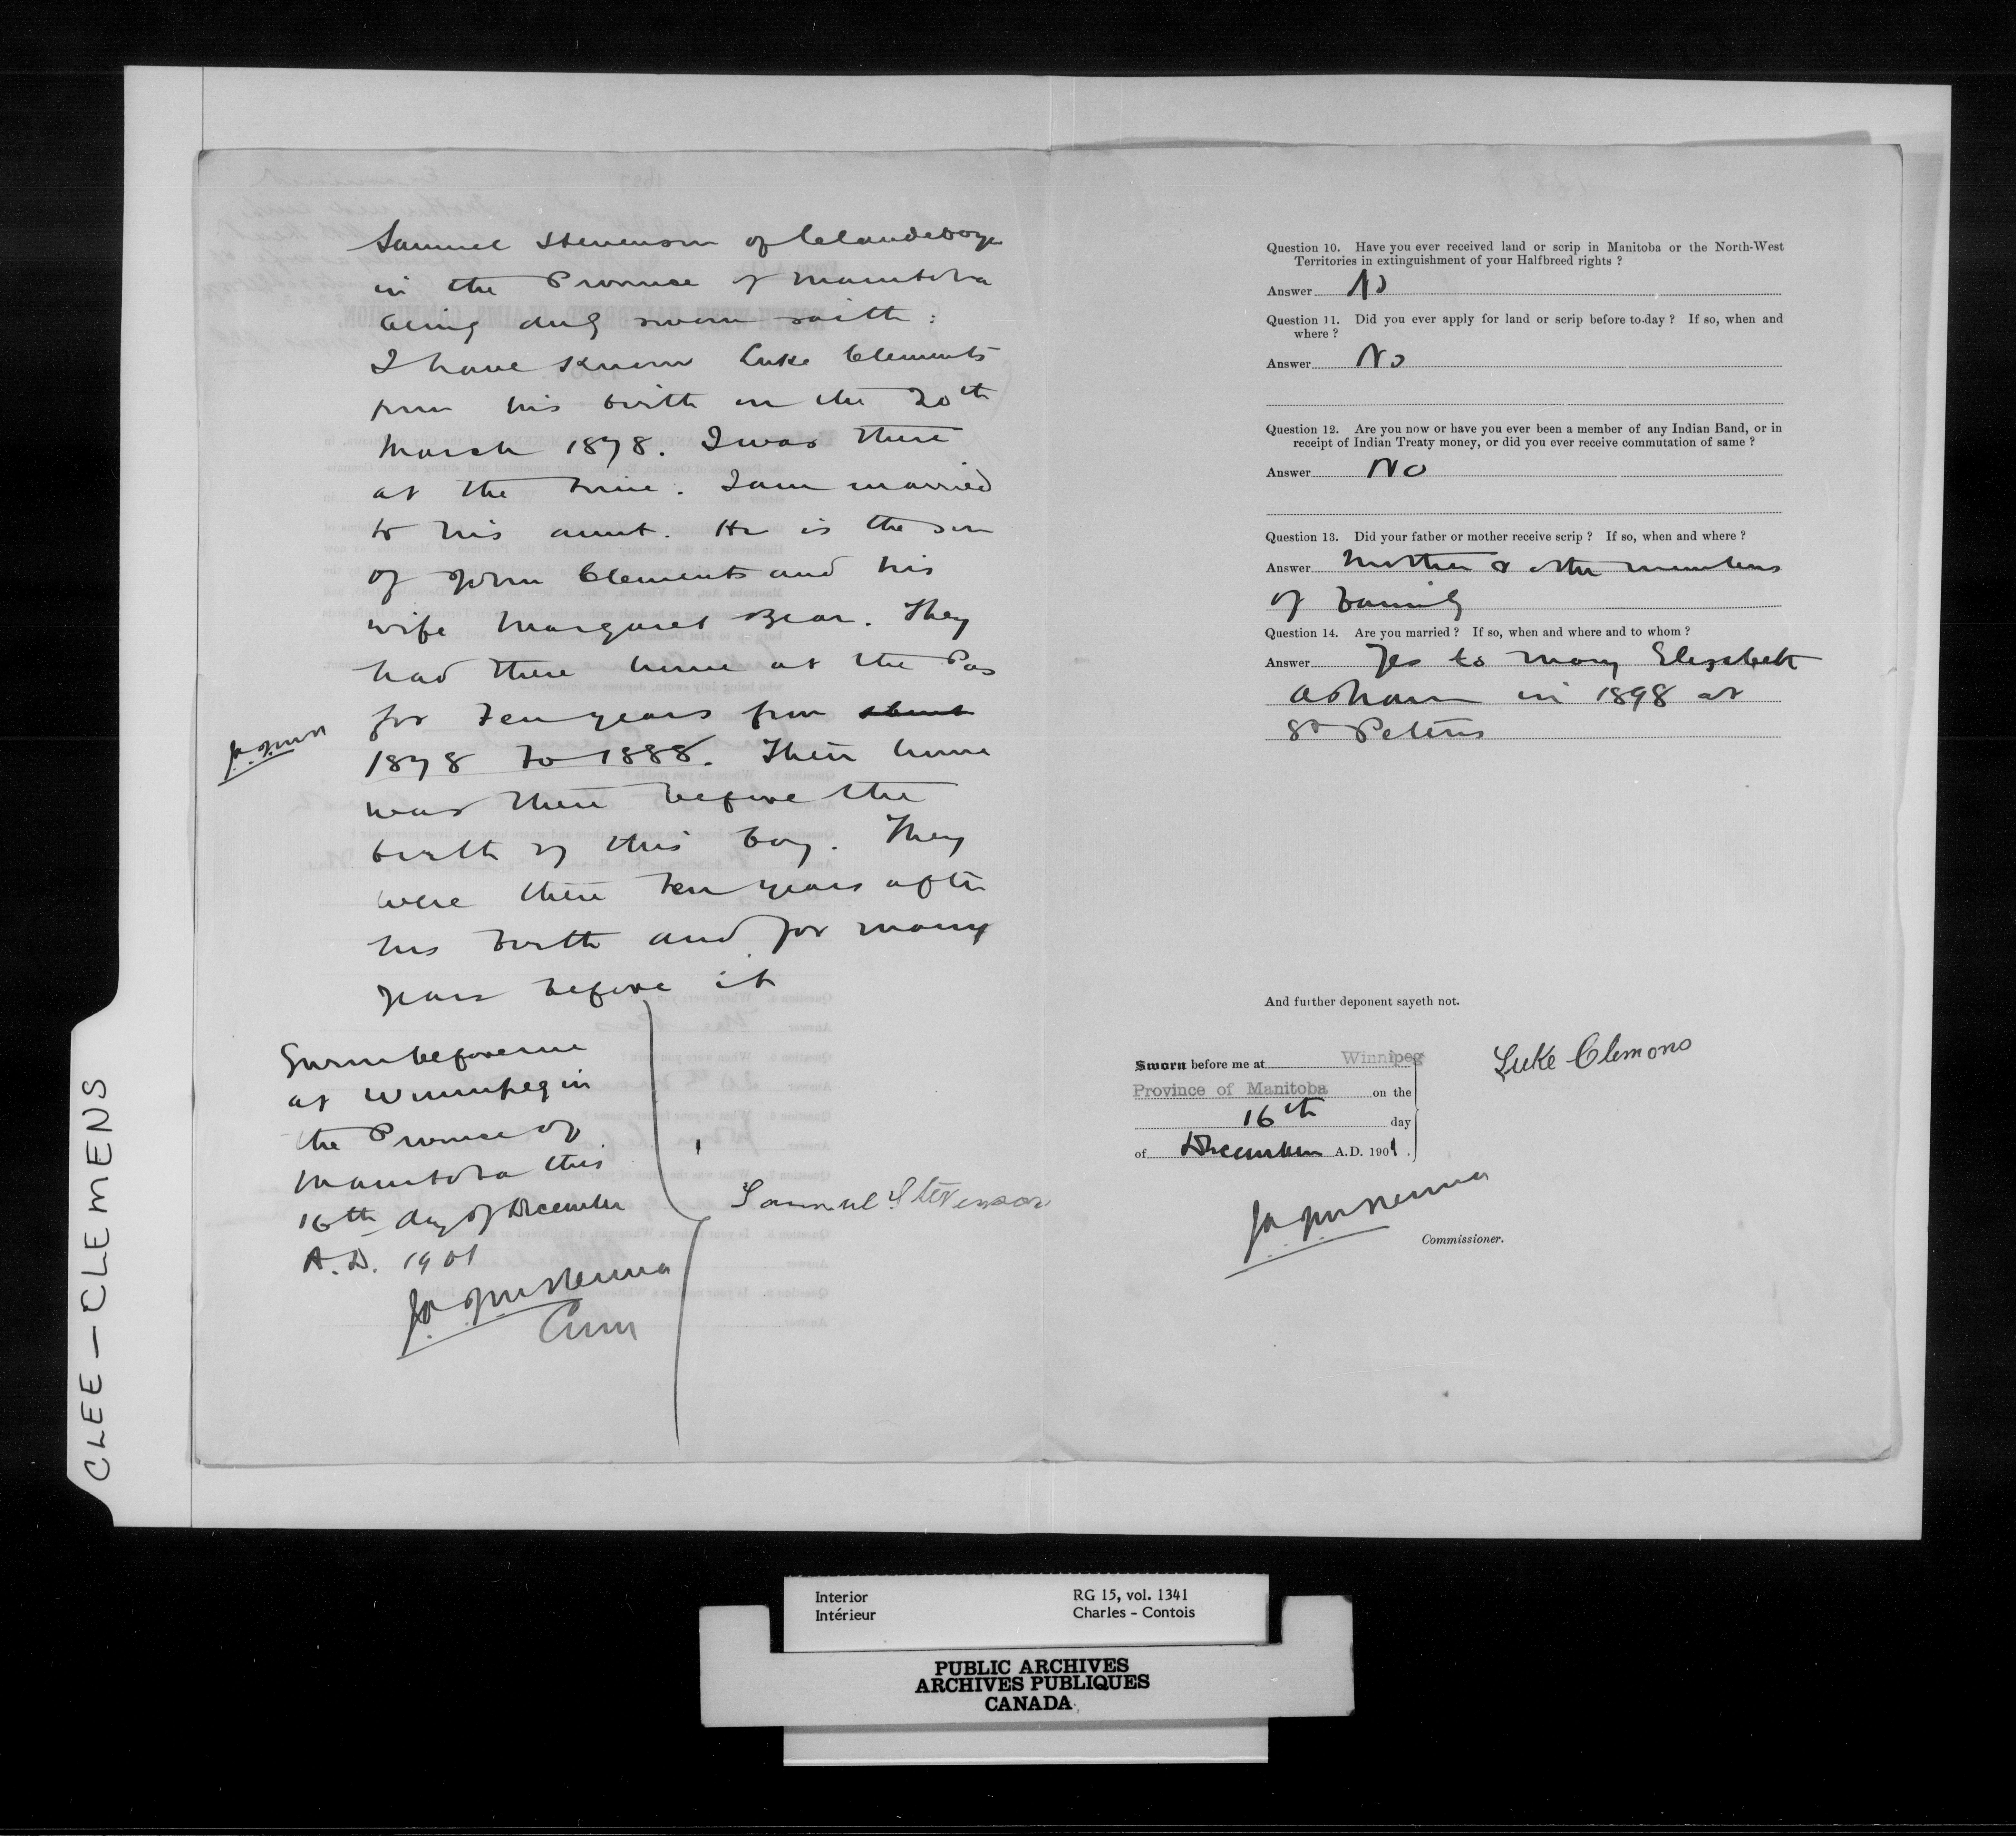 Samuel Stevenson of Clandeboye
in the Province of Manitoba
being duly sworn saith :
I have known Luke Clements
from his birth on the 20th
March 1878. I was there
at the time. I am married
to his aunt. He is the son
of John Clements and his
wife Margaret Bear. They
had there home at the Pas
for ten years from about
1878 to 1888. Their home
was there before the
birth of this boy. They
were there ten years after
his birth and for many
years before it
Sworn before me
at Winnipeg in
the Province of
Manitoba this
16th day of December
A.D. 1901
Samuel Stevenson
Question 10. Have you ever received land or scrip in Manitoba or the North-West
Territories in extinguishment of your Halfbreed rights ?
Answer No
Question 11. Did you ever apply for land or scrip before to-day ? If so, when and
where ?
Answer No
Question 12. Are you now or have you ever been a member of any Indian Band, or in
receipt of Indian Treaty money, or did you ever receive commutation of same ?
Answer No
Question 13. Did your father or mother receive scrip ? If so, when and where ?
Answer Mother & other members
of family
Question 14. Are you married ? If so, when and where and to whom ?
Answer Yes to Mary Elizabeth
Asham in 1898 at
St Peters
And further deponent sayeth not.
Sworn before me at Winnipeg
Province of Manitoba on the
16th day
of December A.D. 1901.
Luke Clemons
Commissioner.
CLEE-CLEMENS
Interior
Intérieur
RG 15, vol. 1341
Charles - Contois
PUBLIC ARCHIVES
ARCHIVES PUBLIQUES
CANADA